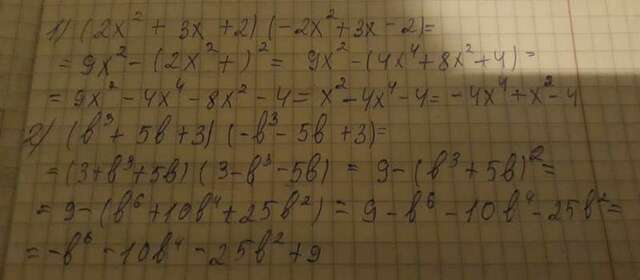 1) (2x² + 3x + 2) (-2x² + 3x - 2) =
= 9x² - (2x² + )² = 9x² - (4x⁴ + 8x² + 4) =
= 9x² - 4x⁴ - 8x² - 4 = x² - 4x⁴ - 4 = -4x⁴ + x² - 4
2) (b³ + 5b + 3) (-b³ - 5b + 3) =
= (3 + b³ + 5b) (3 - b³ - 5b) = 9 - (b³ + 5b)² =
= 9 - (b⁶ + 10b⁴ + 25b²) = 9 - b⁶ - 10b⁴ - 25b² =
= -b⁶ - 10b⁴ - 25b² + 9